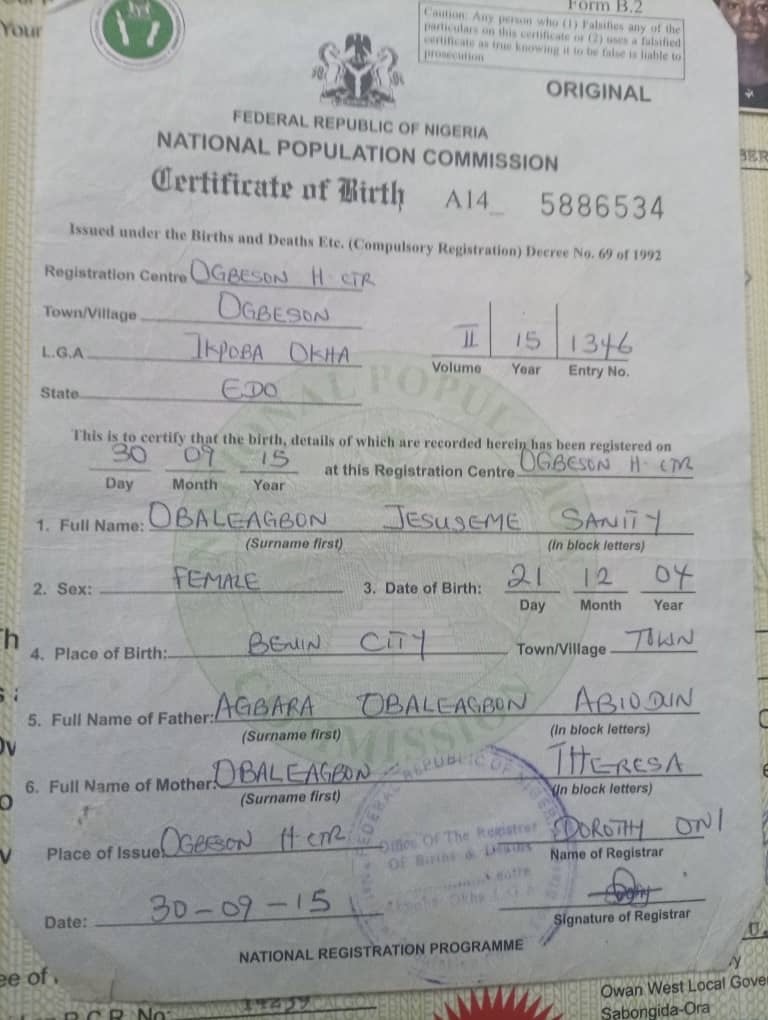 Your
Form B.2
Caution: Any person who (1) Falsifies any of the
particulars on this certificate or (2) uses a falsified
certificate as true knowing it to be false is liable to
prosecution
ORIGINAL
FEDERAL REPUBLIC OF NIGERIA
NATIONAL POPULATION COMMISSION
Certificate of Birth A14_ 5886534
Issued under the Births and Deaths Etc. (Compulsory Registration) Decree No. 69 of 1992
Registration Centre OGBESON H. CTR
Town/Village OGBESON
L.G.A IKPOBA OKHA
II 15 1346
Volume Year Entry No.
State EDO
This is to certify that the birth, details of which are recorded herein has been registered on
30 09 15 at this Registration Centre OGBESON H. CTR
Day Month Year
1. Full Name: OBALEAGBON JESUSEME SANITY
(Surname first) (In block letters)
2. Sex: FEMALE 3. Date of Birth: 21 12 04
Day Month Year
4. Place of Birth: BENIN CITY Town/Village TOWN
5. Full Name of Father: AGBARA OBALEAGBON ABIODUN
(Surname first) (In block letters)
6. Full Name of Mother: OBALEAGBON THERESA
(Surname first) (In block letters)
Place of Issue OGBESON H. CTR DOROTHY ONI
Name of Registrar
Date: 30-09-15
Signature of Registrar
NATIONAL REGISTRATION PROGRAMME
NATIONAL POPULATION COMMISSION
Office Of The Registrar
Of Births & Deaths
ee of
R.C.R. No:
Owan West Local Gove
Sabongida-Ora